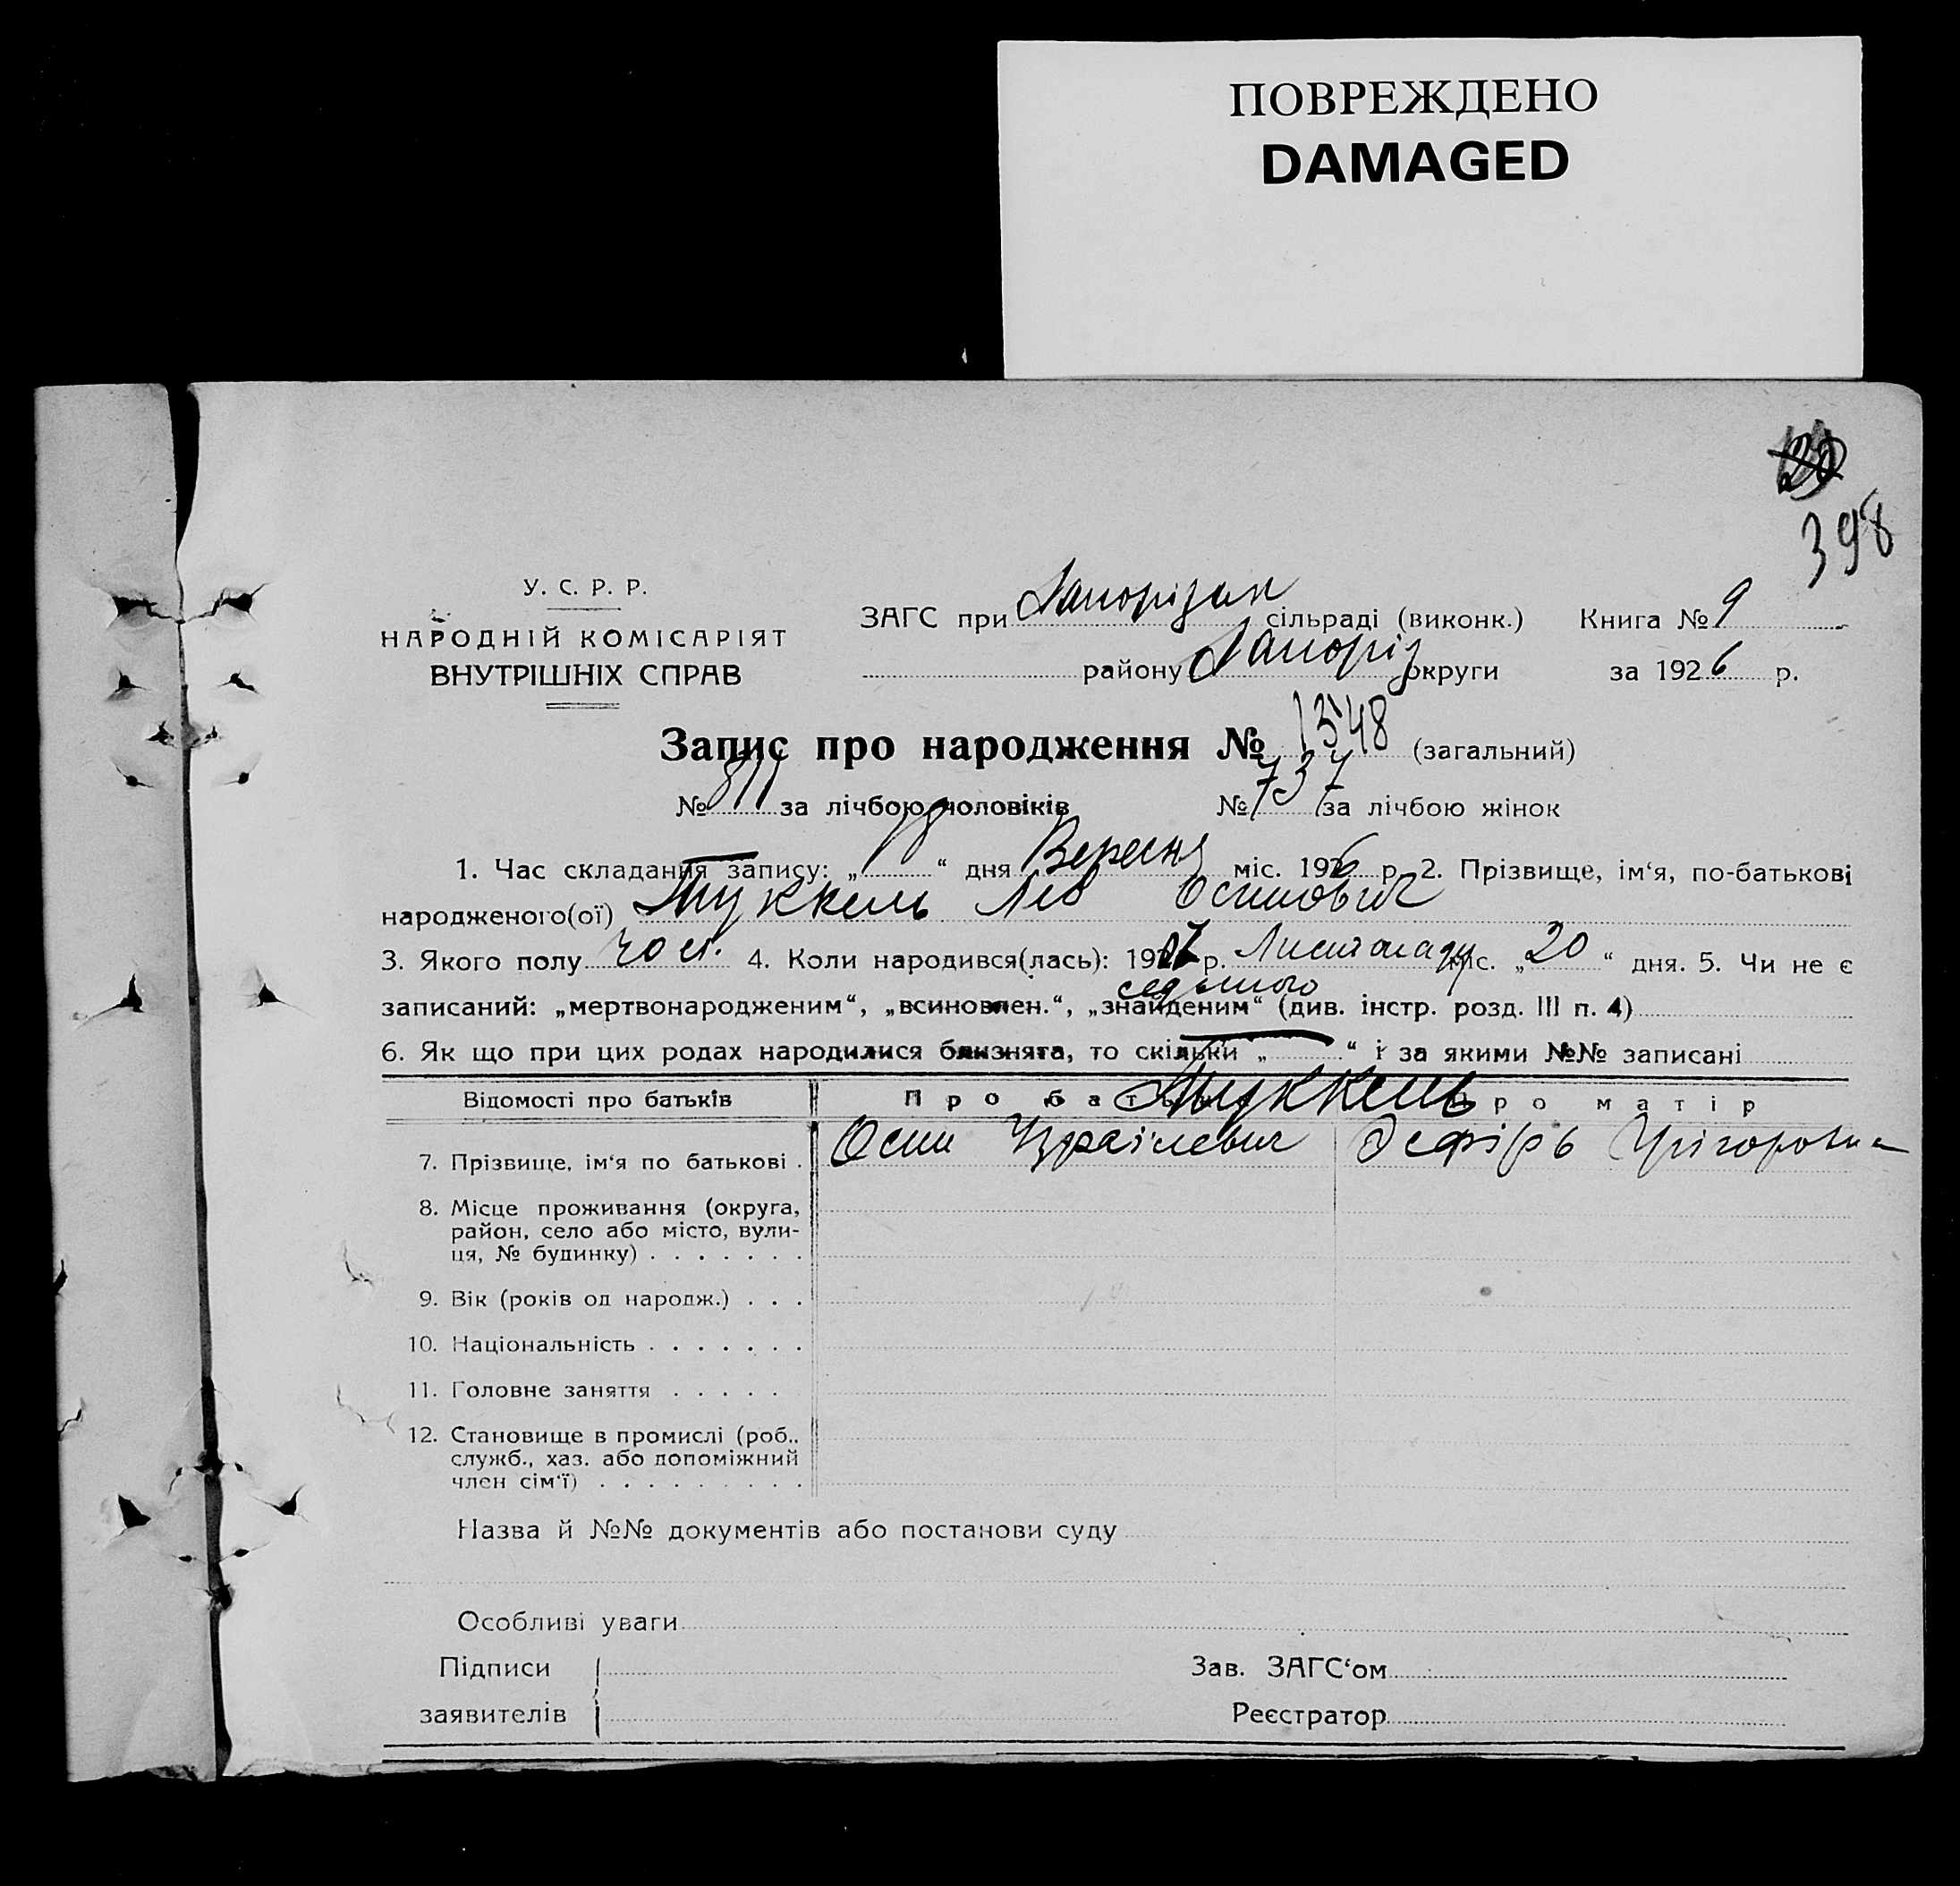 ПОВРЕЖДЕНО
DAMAGED
398
У. С. Р. Р.
НАРОДНІЙ КОМІСАРІЯТ
ВНУТРІШНІХ СПРАВ
ЗАГС при Запорізьк сільраді (виконк.) Книга № 9
району Запоріз округи за 1926 р.
Запис про народження № 1548 (загальний)
№ 811 за лічбою чоловіків № 737 за лічбою жінок
1. Час складання запису: „18“ дня Вересня міс. 1926 р. 2. Прізвище, ім‘я, по-батькові
народженого(ої) Туккель Лео Осипович
3. Якого полу чол. 4. Коли народився(лась): 1907 р. Листопаду міс. „20“ дня. 5. Чи не є
седьмого
записаний: „мертвонародженим“, „всиновлен.“, „знайденим“ (див. інстр. розд. III п. 4)
6. Як що при цих родах народилися близнята, то скільки „ “ і за якими №№ записані
Відомості про батьків Про батька Туккель Про матір
7. Прізвище, ім‘я по батькові . Осип Ізраілевич Эсфірь Грігоровна
8. Місце проживання (округа,
район, село або місто, вули-
ця, № будинку) . . . . . . .
9. Вік (років од народж.) . . .
10. Національність . . . . . . .
11. Головне заняття . . . . .
12. Становище в промислі (роб.,
служб., хаз. або допоміжний
член сім‘ї) . . . . . . . . .
Назва й №№ документів або постанови суду
Особливі уваги
Підписи Зав. ЗАГС‘ом
заявителів Реєстратор